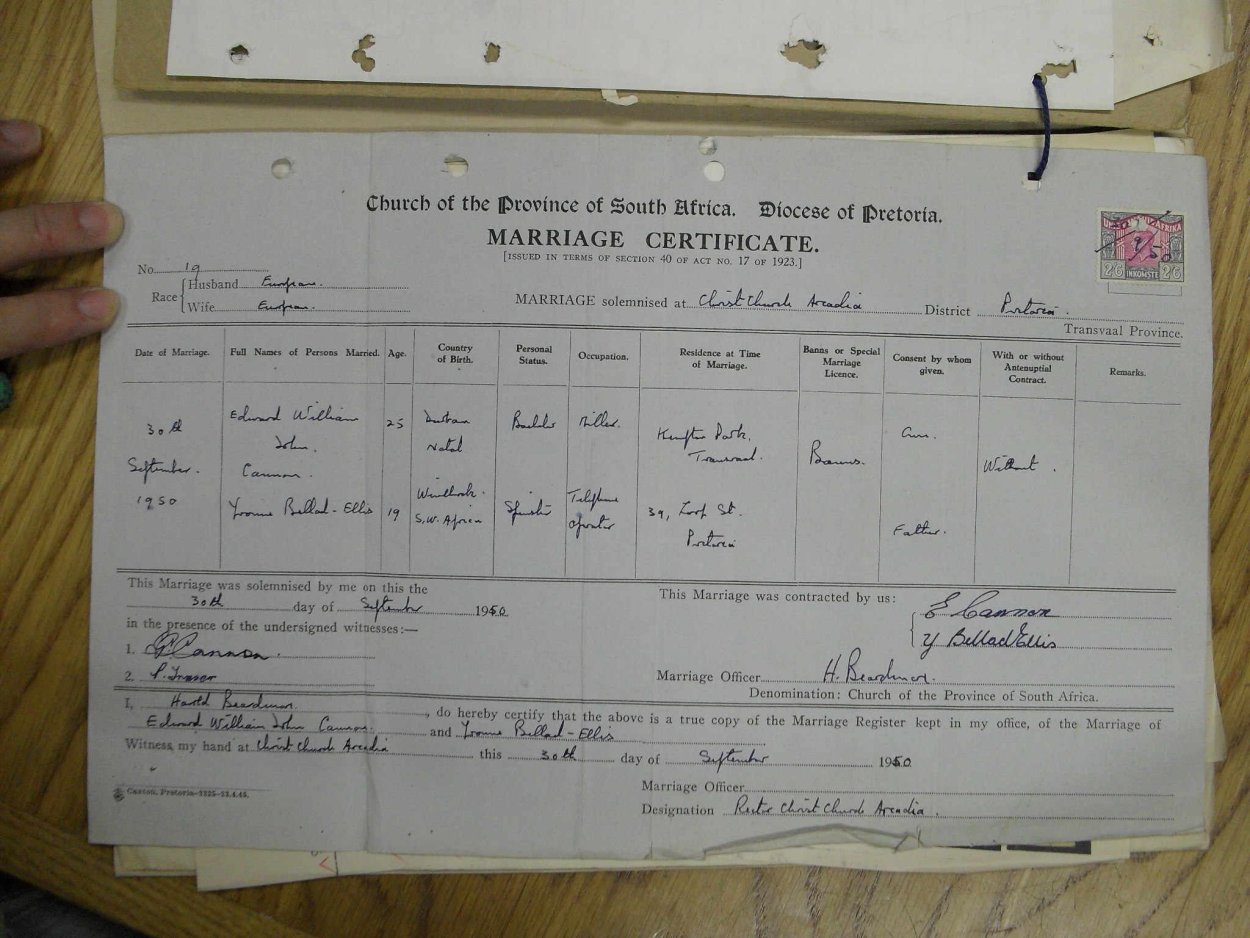 Church of the Province of South Africa. Diocese of Pretoria.
MARRIAGE CERTIFICATE.
[ISSUED IN TERMS OF SECTION 40 OF ACT NO. 17 OF 1923.]
No. 19
Race { Husband European.
Wife European.
MARRIAGE solemnised at Christ Church Arcadia District Pretoria.
Transvaal Province.
2/6 INKOMSTE 2/6
Date of Marriage. Full Names of Persons Married. Age. Country of Birth. Personal Status. Occupation. Residence at Time of Marriage. Banns or Special Marriage Licence. Consent by whom given. With or without Antenuptial Contract. Remarks.
30th September. 1950
Edward William John. Cannon. 25 Durban Natal Bachelor Miller. Kempton Park, Transvaal. Banns. Without.
Yvonne Bellad-Ellis 19 Windhoek. S.W. Africa Spinster Telephone operator 39, Loop St. Pretoria Father.
This Marriage was solemnised by me on this the
30th day of September 1950
in the presence of the undersigned witnesses:—
1. Cannon.
2. P. Fraser
This Marriage was contracted by us: { E Cannon
Y Bellad Ellis
Marriage Officer H. Beardmore.
Denomination: Church of the Province of South Africa.
I, Harold Beardmore, do hereby certify that the above is a true copy of the Marriage Register kept in my office, of the Marriage of
Edward William John Cannon. and Yvonne Bellad-Ellis
Witness my hand at Christ Church Arcadia this 30th day of September 1950
Marriage Officer
Designation Rector Christ Church Arcadia.
Caxton, Pretoria—3325—23.4.45.